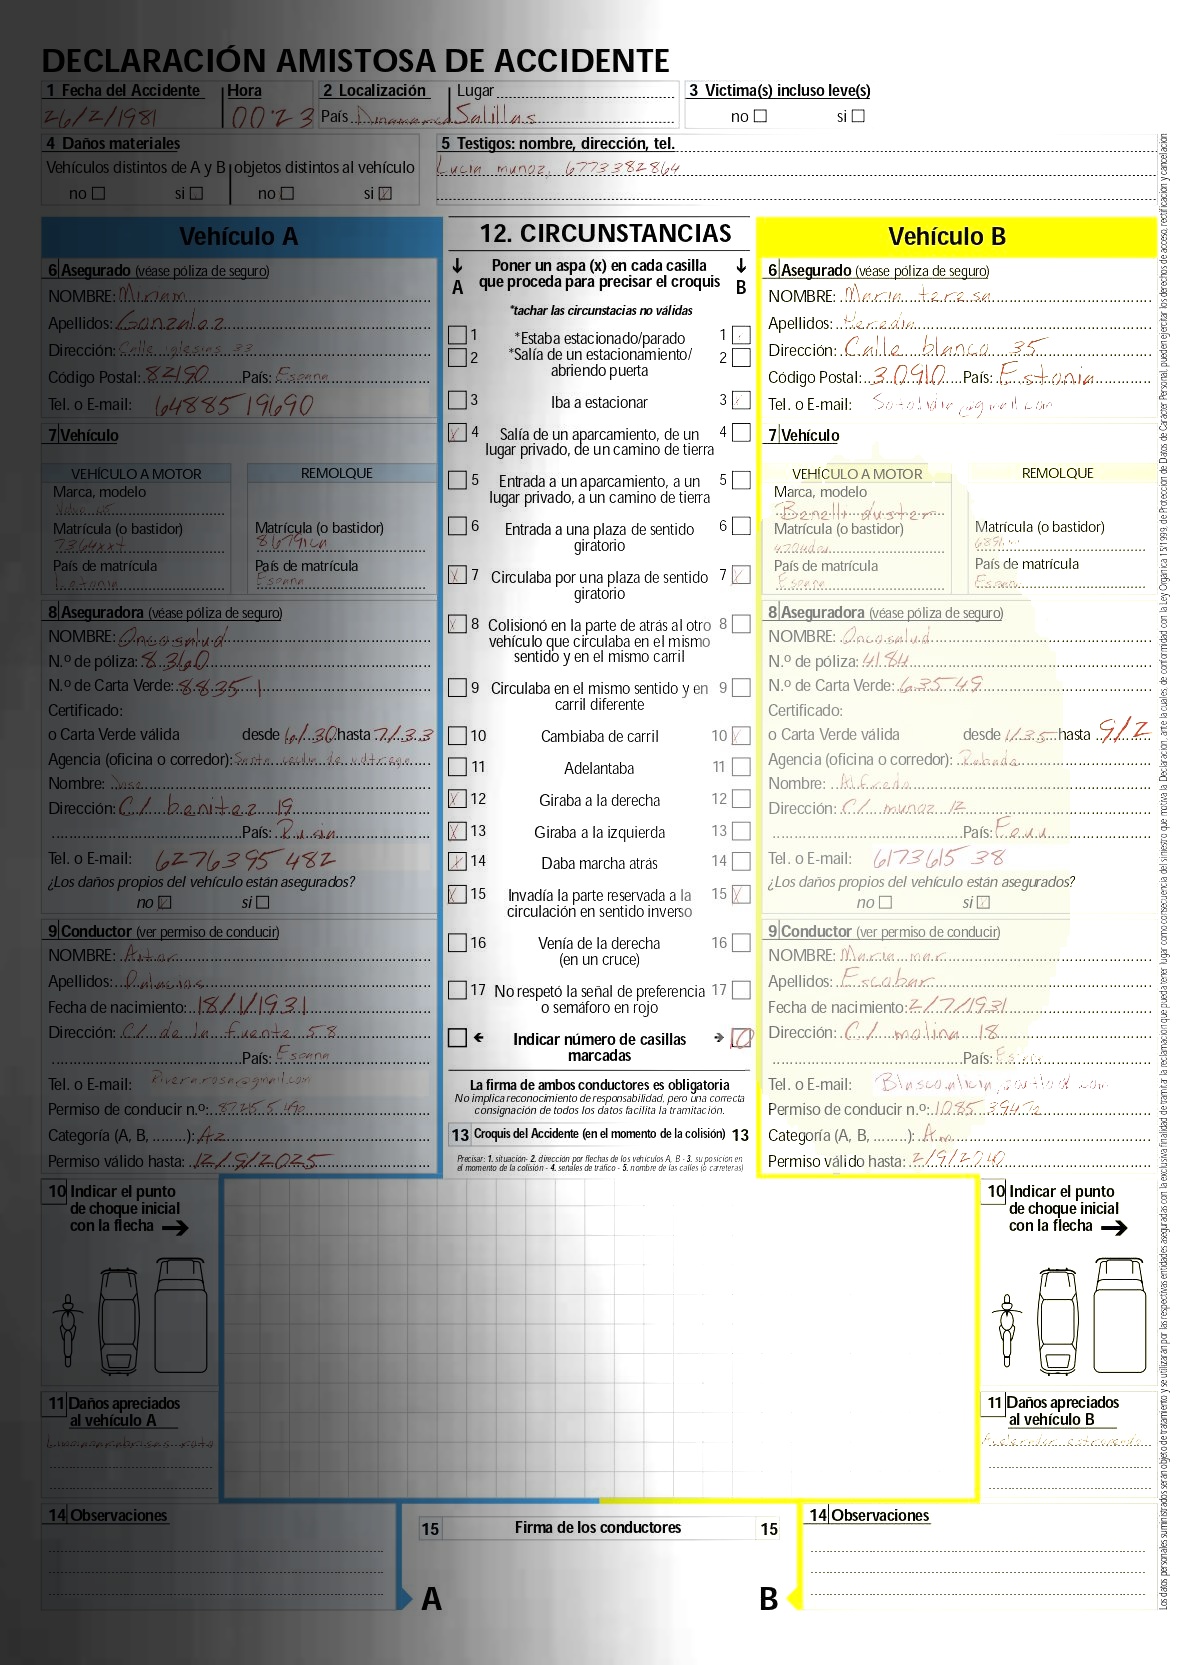 DECLARACIÓN AMISTOSA DE ACCIDENTE
1 Fecha del Accidente Hora 2 Localización Lugar 3 Victima(s) incluso leve(s)
26/2/1981 00:23 País Dinamarca Salillas no si
4 Daños materiales 5 Testigos: nombre, dirección, tel.
Vehículos distintos de A y B objetos distintos al vehículo Lucia munoz, 6773382864
no si no si
Vehículo A 12. CIRCUNSTANCIAS Vehículo B
A Poner un aspa (x) en cada casilla que proceda para precisar el croquis B
*tachar las circunstacias no válidas
6 Asegurado (véase póliza de seguro)
NOMBRE: Miriam
Apellidos: Gonzalez
Dirección: Calle iglesias 33
Código Postal: 82190 País: Espana
Tel. o E-mail: 6488519690
7 Vehículo
VEHÍCULO A MOTOR REMOLQUE
Marca, modelo
Matrícula (o bastidor) Matrícula (o bastidor)
7364xxt
País de matrícula País de matrícula
Letonia Espana
8 Aseguradora (véase póliza de seguro)
NOMBRE: Oncosalud
N.º de póliza: 8360
N.º de Carta Verde: 88351
Certificado:
o Carta Verde válida desde 6/30 hasta 7/33
Agencia (oficina o corredor):
Nombre: Jose
Dirección: C/ benitez 19
País: Rusia
Tel. o E-mail: 6276395482
¿Los daños propios del vehículo están asegurados?
no si
9 Conductor (ver permiso de conducir)
NOMBRE: Aitor
Apellidos: Palacios
Fecha de nacimiento: 18/1/1931
Dirección: C/ de la fuente 58
País: Espana
Tel. o E-mail: Riverarosa@gmail.com
Permiso de conducir n.º:
Categoría (A, B, ........): A2
Permiso válido hasta: 12/9/2025
1 *Estaba estacionado/parado 1
2 *Salía de un estacionamiento/ abriendo puerta 2
3 Iba a estacionar 3
4 Salía de un aparcamiento, de un lugar privado, de un camino de tierra 4
5 Entrada a un aparcamiento, a un lugar privado, a un camino de tierra 5
6 Entrada a una plaza de sentido giratorio 6
7 Circulaba por una plaza de sentido giratorio 7
8 Colisionó en la parte de atrás al otro vehículo que circulaba en el mismo sentido y en el mismo carril 8
9 Circulaba en el mismo sentido y en carril diferente 9
10 Cambiaba de carril 10
11 Adelantaba 11
12 Giraba a la derecha 12
13 Giraba a la izquierda 13
14 Daba marcha atrás 14
15 Invadía la parte reservada a la circulación en sentido inverso 15
16 Venía de la derecha (en un cruce) 16
17 No respetó la señal de preferencia o semáforo en rojo 17
Indicar número de casillas marcadas 10
La firma de ambos conductores es obligatoria
No implica reconocimiento de responsabilidad, pero una correcta
consignación de todos los datos facilita la tramitación.
13 Croquis del Accidente (en el momento de la colisión) 13
Precisar: 1. situación- 2. dirección por flechas de los vehículos A, B - 3. su posición en
el momento de la colisión - 4. señales de tráfico - 5. nombre de las calles (o carreteras)
6 Asegurado (véase póliza de seguro)
NOMBRE: Maria teresa
Apellidos: Heredia
Dirección: Calle blanco 35
Código Postal: 30910 País: Estonia
Tel. o E-mail:
7 Vehículo
VEHÍCULO A MOTOR REMOLQUE
Marca, modelo
Benelli duster
Matrícula (o bastidor) Matrícula (o bastidor)
País de matrícula País de matrícula
Espana Espana
8 Aseguradora (véase póliza de seguro)
NOMBRE: Oncosalud
N.º de póliza: 4184
N.º de Carta Verde: 63549
Certificado:
o Carta Verde válida desde 1/35 hasta 9/2
Agencia (oficina o corredor):
Nombre: Alfredo
Dirección: C/ munoz 12
País:
Tel. o E-mail: 617361538
¿Los daños propios del vehículo están asegurados?
no si
9 Conductor (ver permiso de conducir)
NOMBRE: Maria mar
Apellidos: Escobar
Fecha de nacimiento: 2/7/1931
Dirección: C/ molina 18
País:
Tel. o E-mail:
Permiso de conducir n.º:
Categoría (A, B, ........): Am
Permiso válido hasta: 2/9/2010
10 Indicar el punto de choque inicial con la flecha
11 Daños apreciados al vehículo A
14 Observaciones
10 Indicar el punto de choque inicial con la flecha
11 Daños apreciados al vehículo B
14 Observaciones
15 Firma de los conductores 15
A B
Los datos personales suministrados seran objeto de tratamiento y se utilizaran por las respectivas entidades aseguradas con la exclusiva finalidad de tramitar la reclamacion que pueda tener lugar como consecuencia del siniestro que motiva la Declaracion, ante la cuales, de conformidad con la Ley Organica 15/1999, de Proteccion de Datos de Caracter Personal, pueden ejercitar los derechos de acceso, rectificación y cancelación